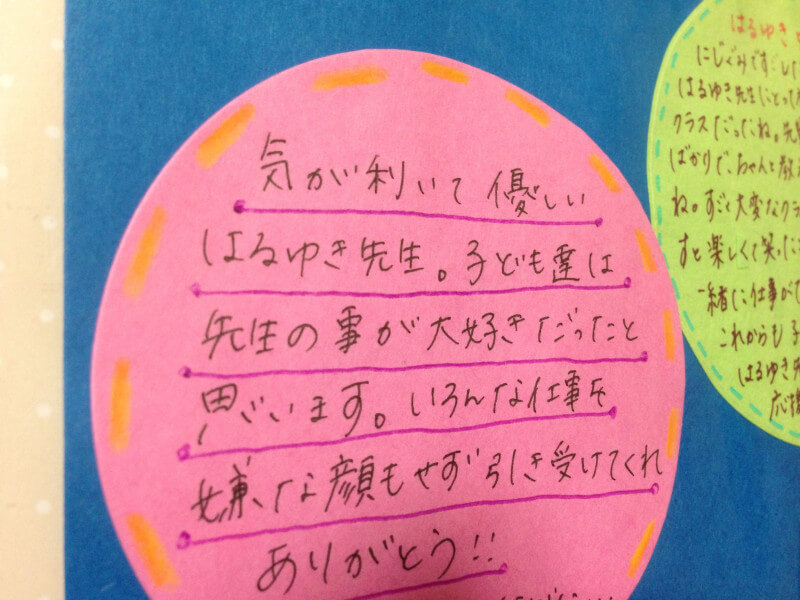 気が利いて優しい
はるゆき先生。子ども達は
先生の事が大好きだったと
思います。いろんな仕事を
嫌な顔もせず引き受けてくれ
ありがとう!!
はるゆき
にじぐみですごした
はるゆき先生にとって
クラスだったね。先
ばかりで、ちゃんと教
ね。すごく大変なクラ
すと楽しくて笑った
一緒に仕事が
これからも子
はるゆき先
応援